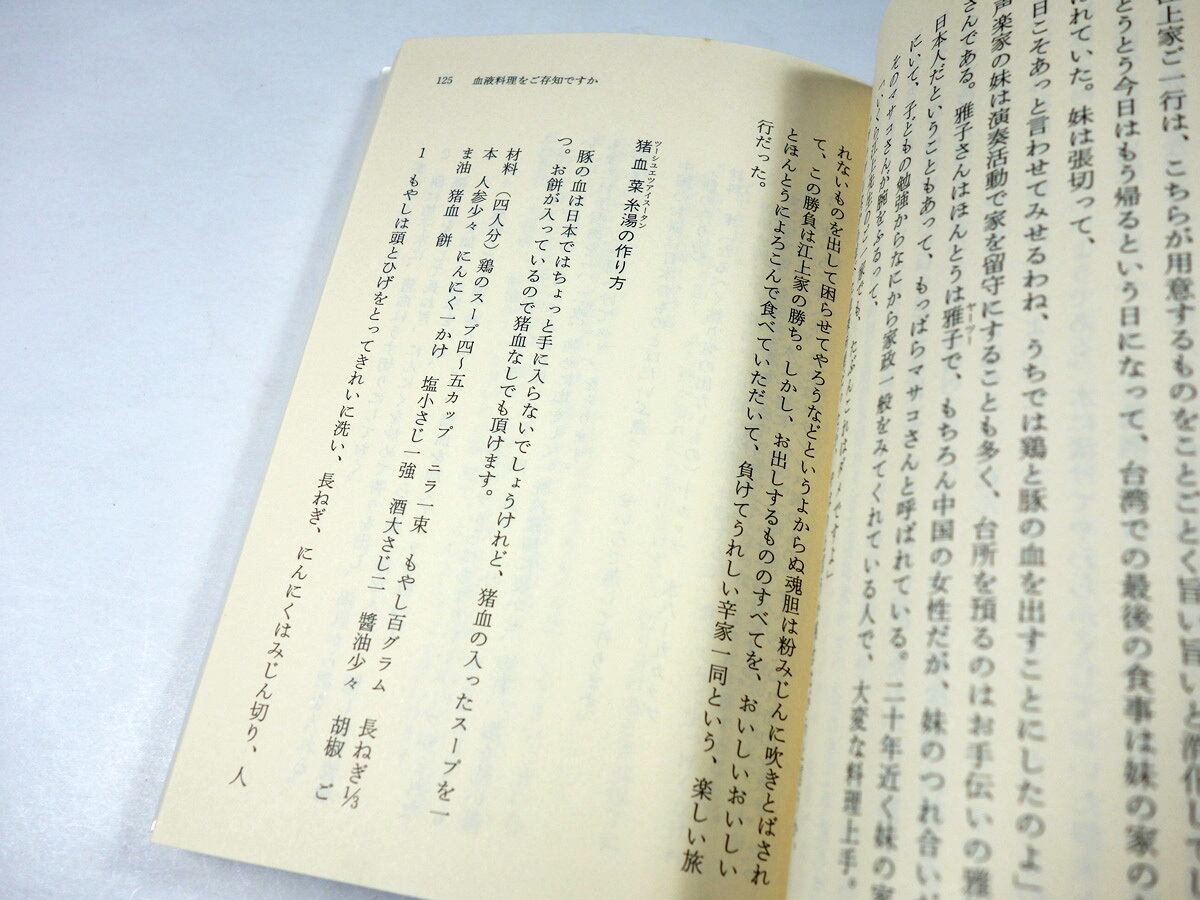 上家ご一行は、こちらが用意するものをことごとく旨い旨いと
とうとう今日はもう帰るという日になって、台湾での最後の食事は妹の家の
れていた。妹は張切って、
日こそあっと言わせてみせるわね、うちでは鶏と豚の血を出すことにしたのよ」
声楽家の妹は演奏活動で家を留守にすることも多く、台所を預るのはお手伝いの雅
さんである。雅子さんはほんとうは雅子で、もちろん中国の女性だが、妹のつれ合いが
ヤーツー
日本人だということもあって、もっぱらマサコさんと呼ばれている。二十年近く妹の家
にいて、子どもの勉強からなにから家政一般をみてくれている人で、大変な料理上手。
そのマサコさんが腕をふるって、
125 血液料理をご存知ですか
れないものを出して困らせてやろうなどというよからぬ魂胆は粉みじんに吹きとばされ
て、この勝負は江上家の勝ち。しかし、お出しするもののすべてを、おいしいおいしい
とほんとうによろこんで食べていただいて、負けてうれしい辛家一同という、楽しい旅
行だった。
猪血菜糸湯の作り方
ツーシュエツァイスータン
豚の血は日本ではちょっと手に入らないでしょうけれど、猪血の入ったスープを一
つ。お餅が入っているので猪血なしでも頂けます。
材料 （四人分）鶏のスープ四〜五カップ ニラ一束 もやし百グラム 長ねぎ1/3
本 人参少々 にんにく一かけ 塩小さじ一強 酒大さじ二 醬油少々 胡椒 ご
ま油 猪血 餅
1 もやしは頭とひげをとってきれいに洗い、長ねぎ、にんにくはみじん切り、人